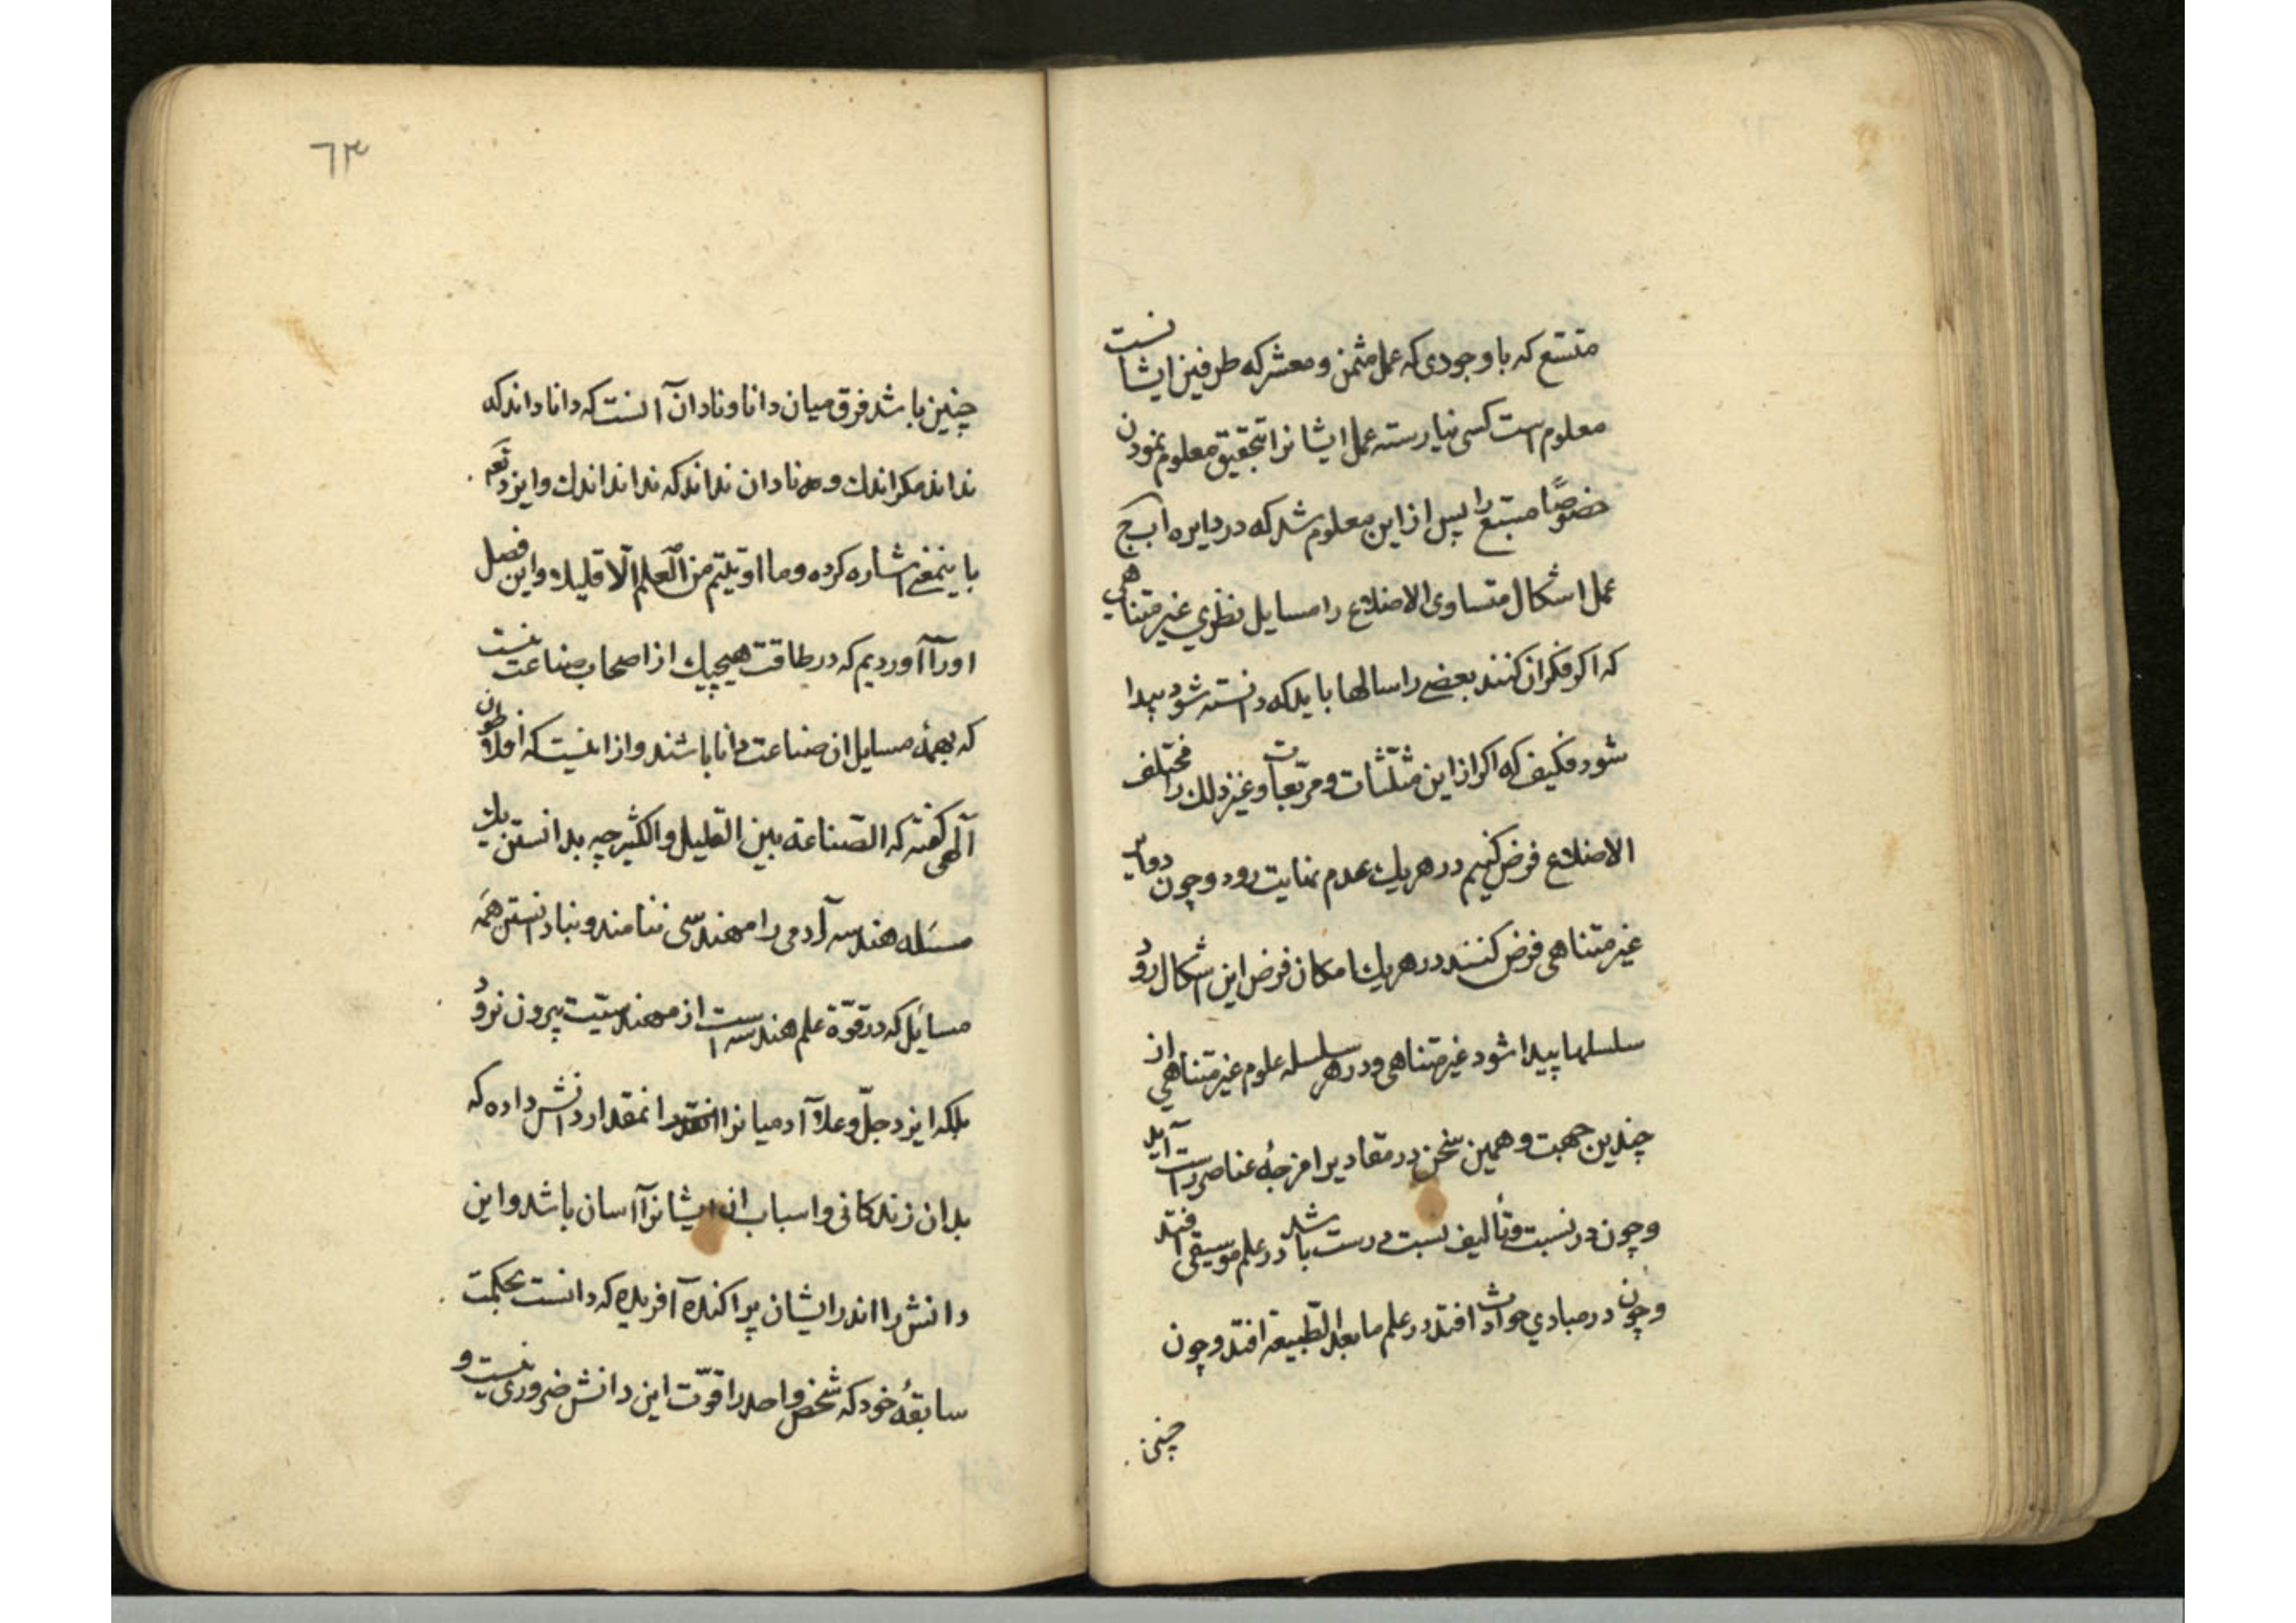 متسّع که با وجودی که عمل مثمن و معشر که طرفین ایشانست
معلوم است کسی نیارسته عمل ایشانرا بتحقیق معلوم نمودن
خصوصًا متسّع را پس از این معلوم شد که در دایره اب ج
عمل اشکال متساوی الاضلاع را مسایل نظری غیر متناهی
که اکر فکر ان کنند بعضی را سالها باید که دانسته شود پیدا
شود فکیف که اکر از این مثلّثات و مربّعات و غیر ذلك را مختلف
الاضلاع فرض کنیم در هریك عدم نهایت رود و چون دوایر
غیر متناهی فرض کنند در هریك امکان فرض این اشکال رود
سلسلها پیدا شود غیر متناهی و در هر سلسله علوم غیر متناهی از
چندین جهت و همین سخن در مقادیر امزجهٔ عناصر راست آید
و چون در نسبت و تألیف نسبت درست باشد در علم موسیقی افتد
و چون در مبادی حوادث افتد در علم مابعد الطّبیعه افتد و چون
چنین
٦٣
چنین باشد فرق میان دانا و نادان آنست که دانا داند که
نداند مکر اندك و نادان نداند که نداند اندك و ایزد تعم
باینمعنی اشاره کرده وما اوتیتم من العلم الّا قلیلا و این فصل
اورا آوردیم که در طاقت هیچیك از اصحاب صناعت نیست
که بهمهٔ مسایل ان صناعت دانا باشند و از اینست که افلاطون
آلهی کفته که الصّناعة بین القلیل والکثیر چه بدانستن یك
مسئله هندسه آدمی را مهندسی ننامند و بنادانستن همه
مسایل که در قوّة علم هندسه است از مهندسیّت بیرون نرود
بلکه ایزد جلّ وعلا آدمیانرا انمقدار دانش داده که
بدان زندکانی و اسباب ان ایشانرا آسان باشد و این
دانش را اندر ایشان پراکنده آفریده که دانست بحکمت
سابقهٔ خود که شخص واحد را قوّت این دانش ضروری نیست و